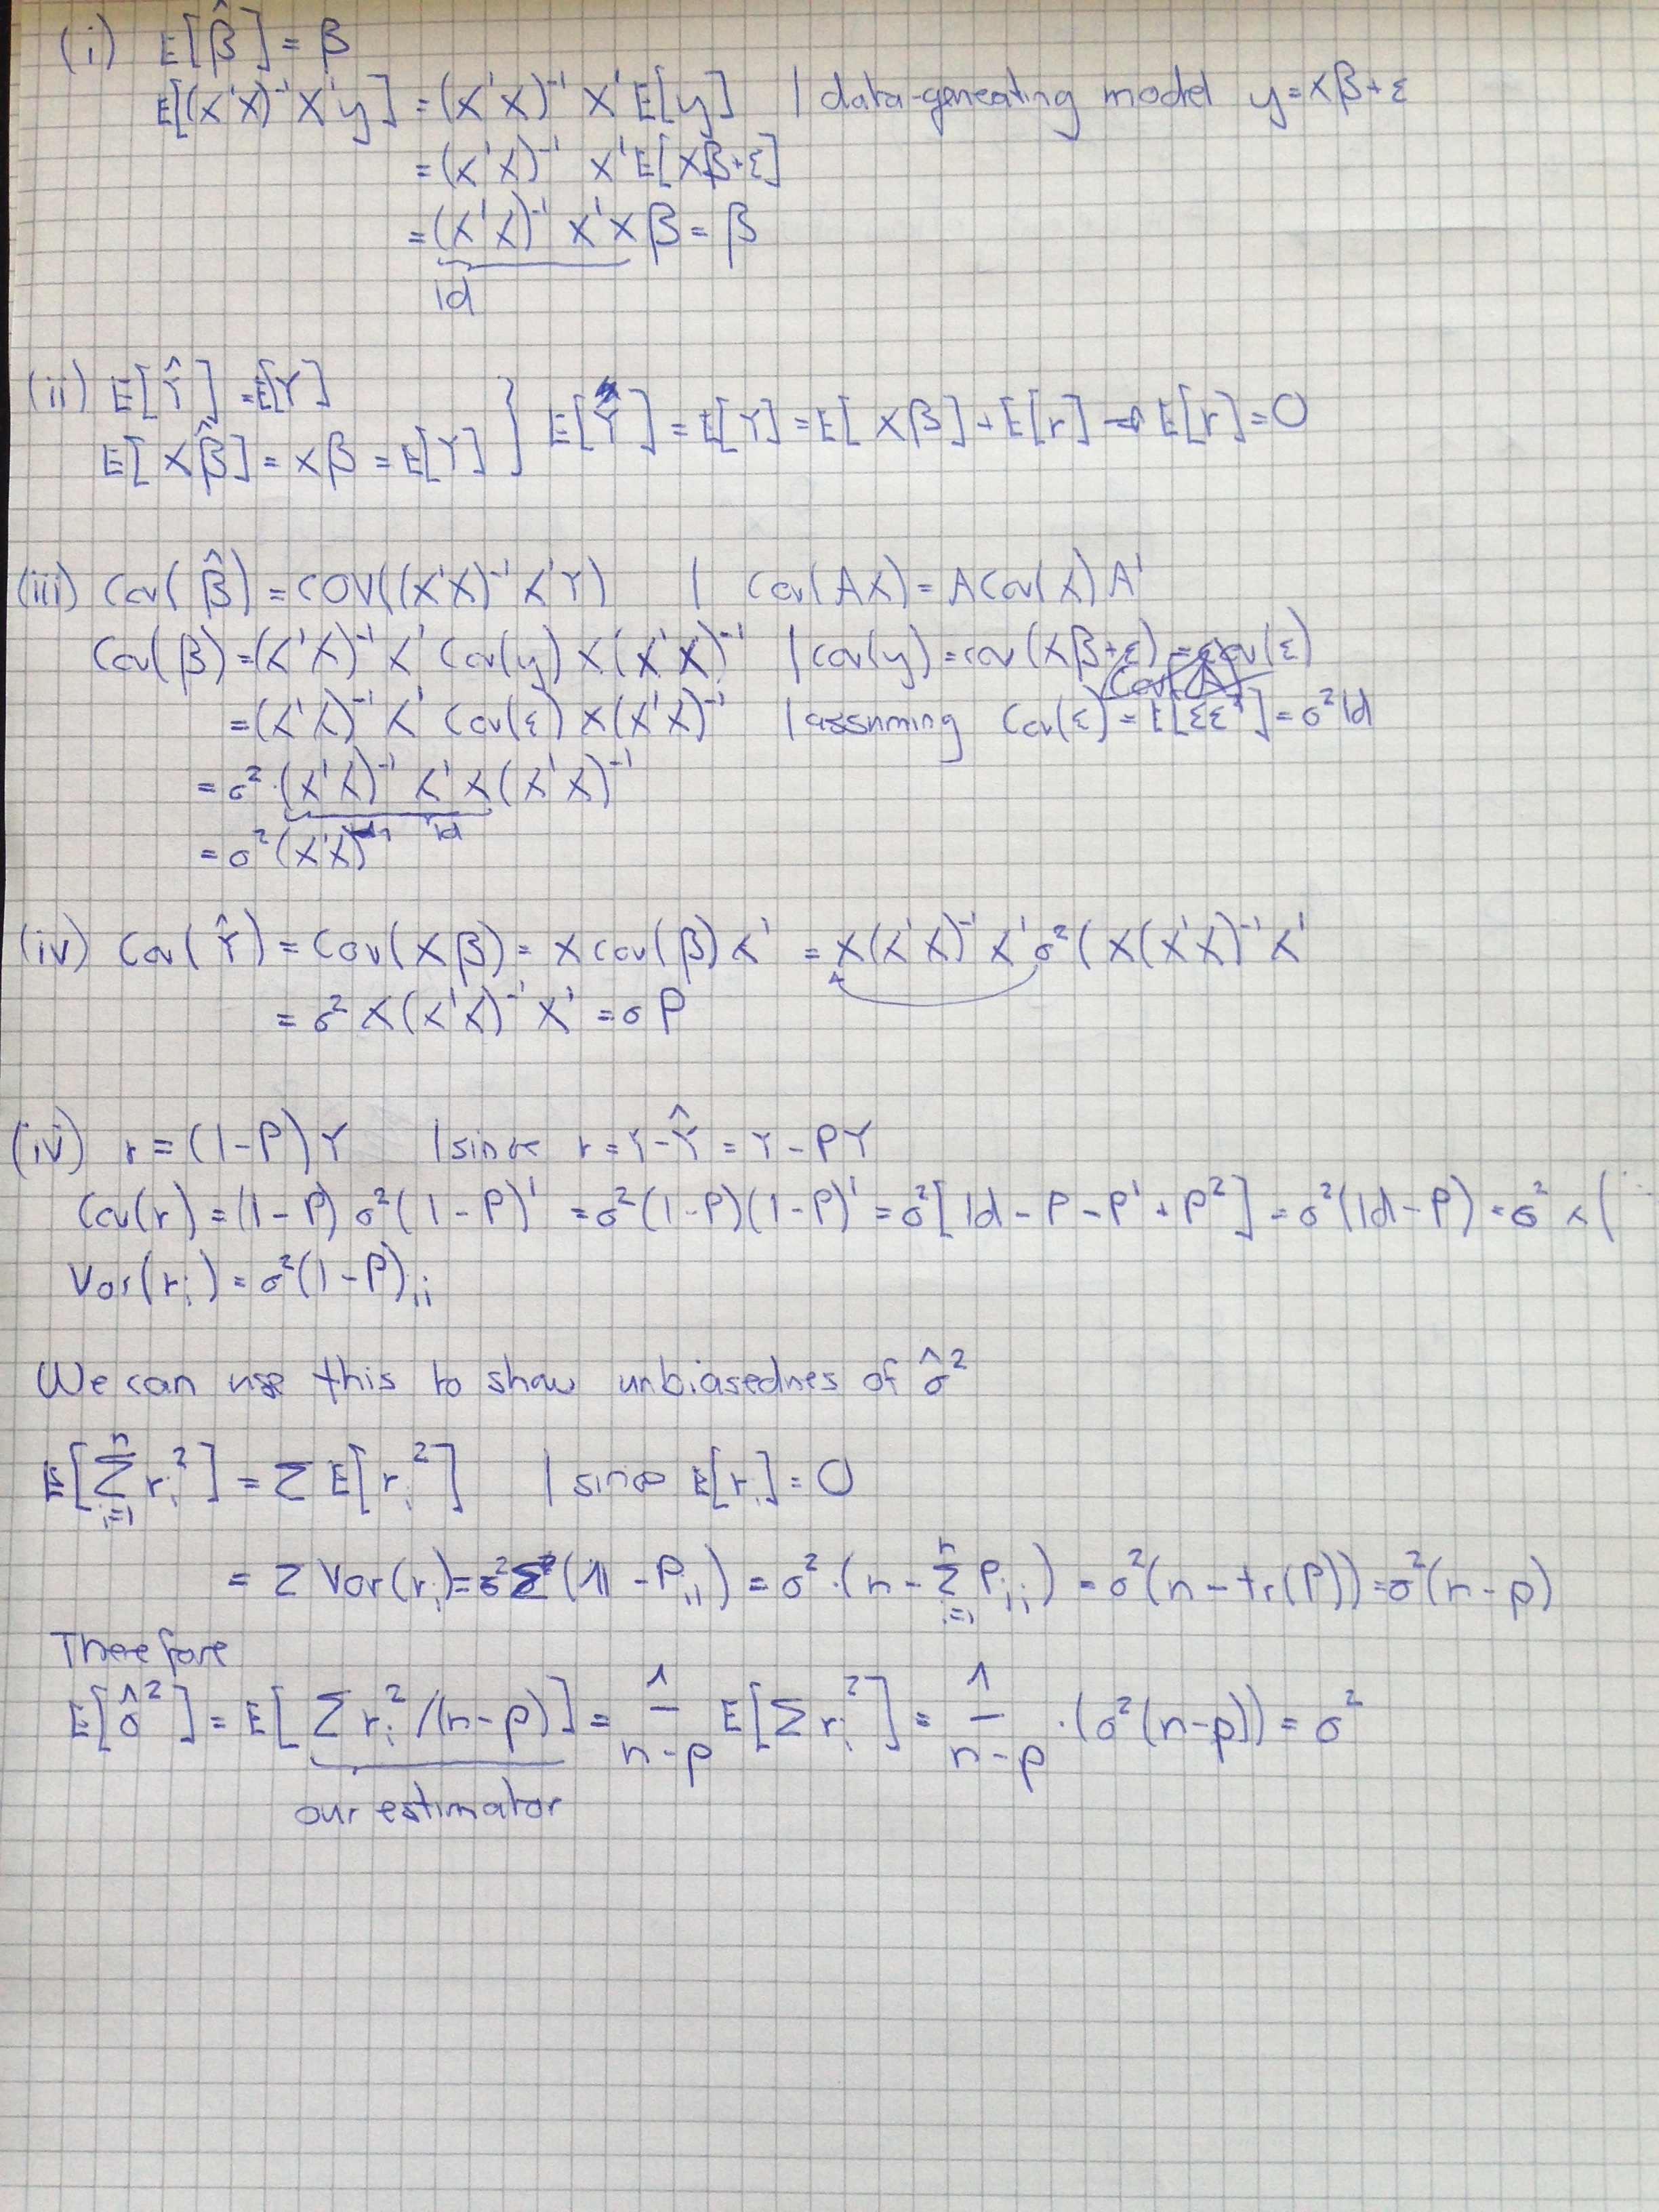 (i) E[β̂] = β
E[(X'X)⁻¹X'y] = (X'X)⁻¹ X'E[y] | data-geneating model y=Xβ+ε
= (X'X)⁻¹ X'E[Xβ+ε]
= (X'X)⁻¹ X'X β = β
Id
(ii) E[Ŷ] = E[Y]
E[Xβ̂] = Xβ = E[Y] } E[Ŷ] = E[Y] = E[Xβ] + E[r] → E[r] = 0
(iii) Cov(β̂) = COV((X'X)⁻¹X'Y) | Cov(AX) = ACov(X)A'
Cov(β) = (X'X)⁻¹X' Cov(y) X(X'X)⁻¹ | Cov(y) = cov(Xβ+ε) = cov(ε)
= (X'X)⁻¹X' Cov(ε) X(X'X)⁻¹ | assuming Cov(ε) = E[εε'] = σ²Id
= σ²·(X'X)⁻¹ X'X(X'X)⁻¹
Id
= σ²(X'X)⁻¹
(iv) Cov(Ŷ) = Cov(Xβ) = X cov(β) X' = X(X'X)⁻¹X'σ²(X(X'X)⁻¹X'
= σ² X(X'X)⁻¹X' = σP
(iv) r = (1-P)Y | since r = Y-Ŷ = Y-PY
Cov(r) = (1-P)σ²(1-P)' = σ²(1-P)(1-P)' = σ²[Id-P-P'+P²] = σ²(Id-P) = σ² x (
Var(rᵢ) = σ²(1-P)ᵢᵢ
We can use this to show unbiasednes of σ̂²
E[Σⁿᵢ₌₁ rᵢ²] = Σ E[rᵢ²] | since E[rᵢ] = 0
= Σ Var(rᵢ) = σ²Σ(1-Pᵢᵢ) = σ²·(n-Σⁿᵢ₌₁Pᵢᵢ) = σ²(n-tr(P)) = σ²(n-p)
Therefore
E[σ̂²] = E[Σrᵢ²/(n-p)] = 1/(n-p) E[Σrᵢ²] = 1/(n-p) ·(σ²(n-p)) = σ²
our estimator